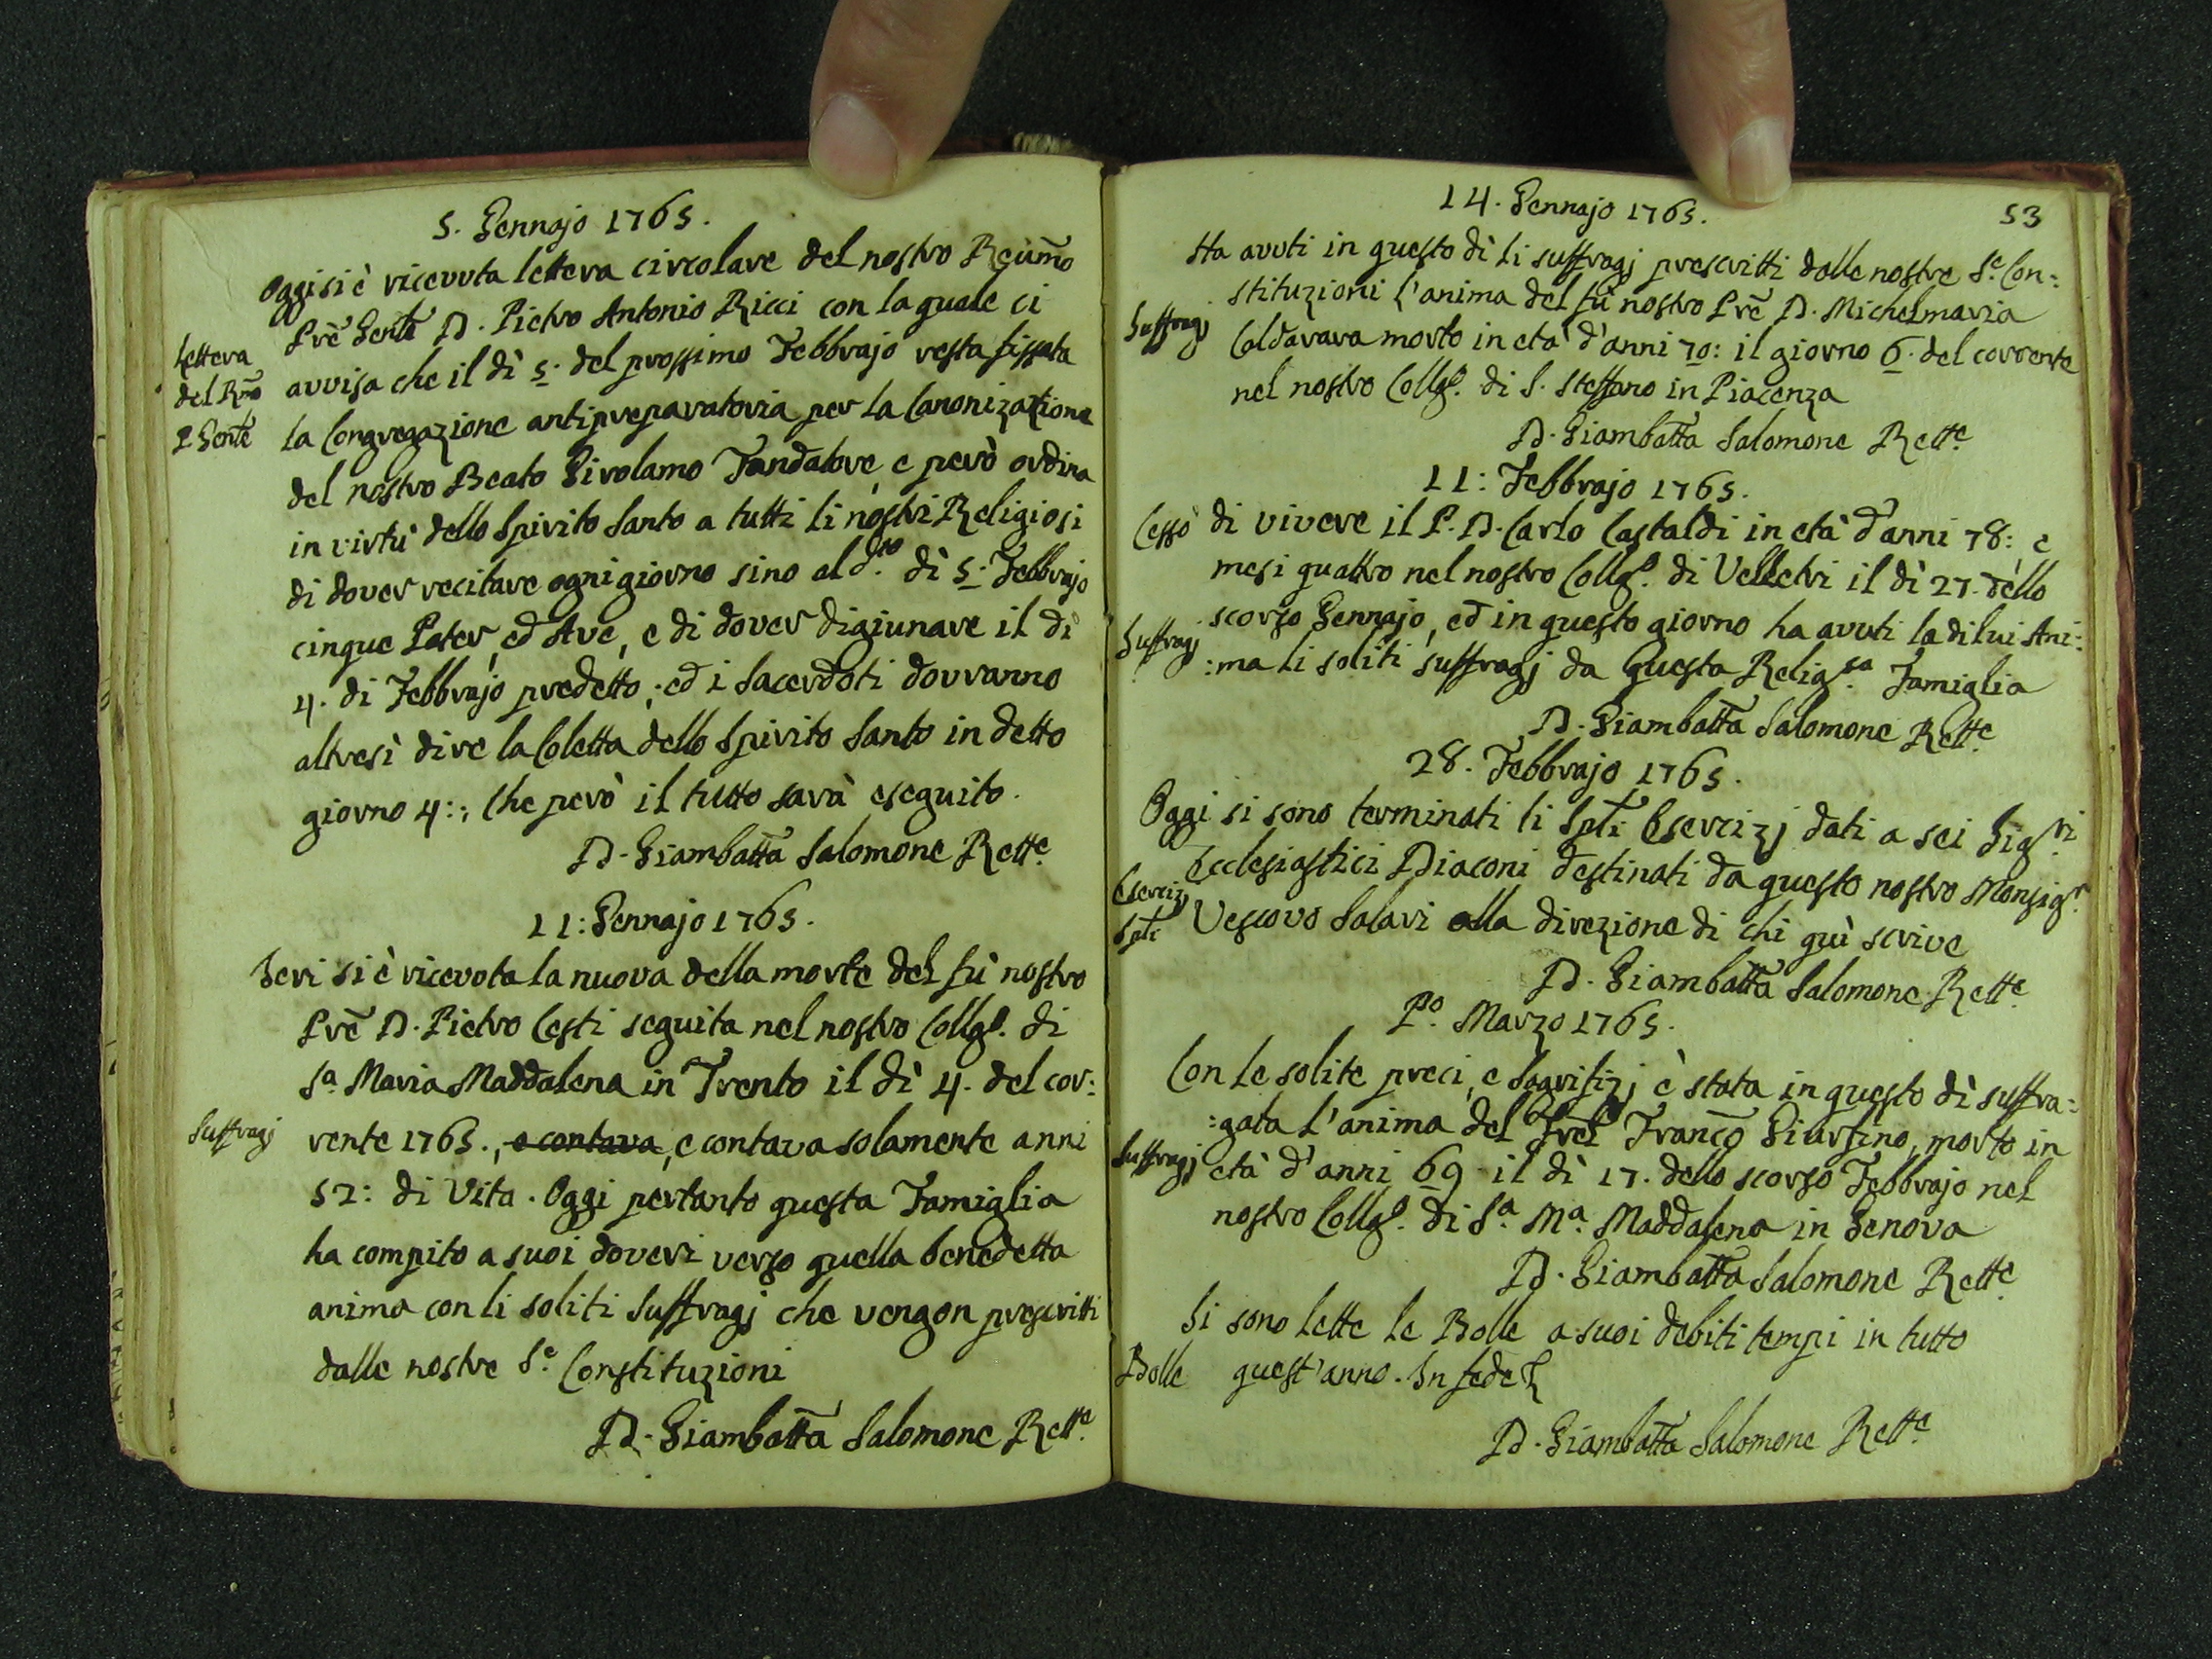 5. Gennajo 1765.
Oggi si è ricevuta lettera circolare del nostro Reūmo
Prē Genle D. Pietro Antonio Ricci con la quale ci
Lettera
del Rmo
P Genle
avvisa che il dì 5. del prossimo Febbrajo resta fissata
la Congregazione antipreparatoria per la Canonizazione
del nostro Beato Girolamo Fondatore, e però ordina
in virtù dello Spirito Santo a tutti li nostri Religiosi
di dover recitare ogni giorno sino al d.to dì 5. Febbrajo
cinque Pater, ed Ave, e di dover digiunare il dì
4. di Febbrajo predetto; ed i Sacerdoti dovranno
altresì dire la Coletta dello Spirito Santo in detto
giorno 4:; che però il tutto sarà eseguito.
D. Giambatta Salomone Rett.e
11: Gennajo 1765.
Ieri si è ricevuta la nuova della morte del fù nostro
Prē D. Pietro Cesti seguita nel nostro Collg.o di
S.a Maria Maddalena in Trento il dì 4. del cor:
Suffragj
rente 1765., e contava, e contava solamente anni
52: di Vita. Oggi pertanto questa Famiglia
ha compito a suoi doveri verso quella benedetta
anima con li soliti Suffragj che vengon prescritti
dalle nostre S.e Constituzioni
D. Giambatta Salomone Rett.e
53
14. Gennajo 1765.
Ha avuti in questo dì li suffragj prescritti dalle nostre S.e Con:
stituzioni l'anima del fù nostro Prē D. Michelmaria
Suffragj
Caldarara morto in età d'anni 70: il giorno 6. del corrente
nel nostro Collg.o di S. Steffano in Piacenza
D. Giambatta Salomone Rett.e
11: Febbrajo 1765.
Cessò di vivere il P. D. Carlo Castaldi in età d'anni 78: e
mesi quattro nel nostro Collg.o di Velletri il dì 27. dello
Suffragj
scorso Gennajo, ed in questo giorno ha avuti la di lui Ani:
:ma li soliti suffragj da questa Relig.sa Famiglia
D. Giambatta Salomone Rett.e
28. Febbrajo 1765.
Oggi si sono terminati li Spli Esercizj dati a sei Sig.ri
Ecclesiastici Diaconi destinati da questo nostro Monsig.r
Esercizj
Spli
Vescovo Salari alla direzione di chi quì scrive
D. Giambatta Salomone Rett.e
P.o Marzo 1765.
Con le solite preci, e Sagrifizj è stata in questo dì suffra:
:gata l'anima del Frel Franco Giusfino, morto in
Suffragj
età d'anni 69 il dì 17. dello scorso Febbrajo nel
nostro Collg.o di S.a M.a Maddalena in Genova
D. Giambatta Salomone Rett.e
Si sono lette le Bolle a suoi debiti tempi in tutto
Bolle
quest'anno. In fede
D. Giambatta Salomone Rett.e